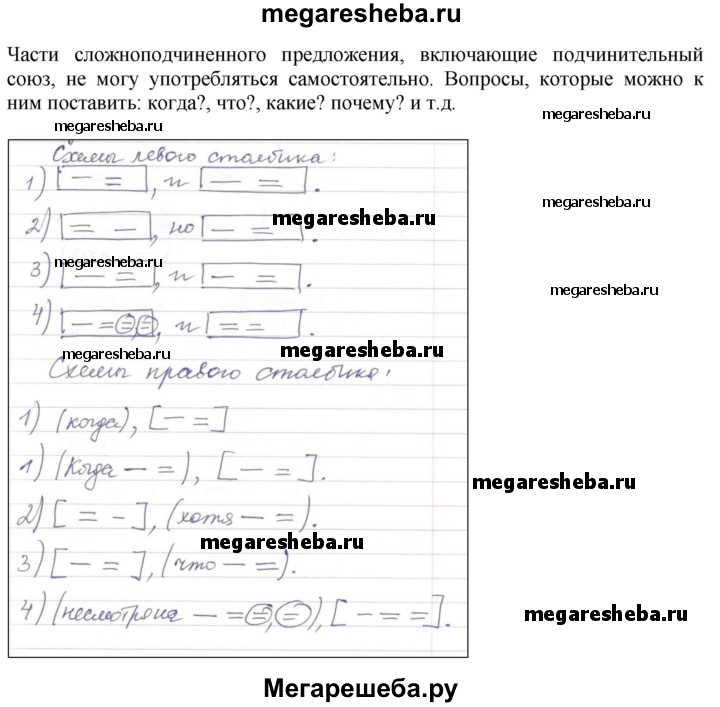 megaresheba.ru
Части сложноподчиненного предложения, включающие подчинительный
союз, не могу употребляться самостоятельно. Вопросы, которые можно к
ним поставить: когда?, что?, какие? почему? и т.д.
megaresheba.ru
megaresheba.ru
Схемы левого столбика:
1) [— =], и [— =].
megaresheba.ru
2) [= —], но [— =].
megaresheba.ru
megaresheba.ru
3) [— =], и [— =].
megaresheba.ru
4) [— = =, =], и [= =].
megaresheba.ru
megaresheba.ru
Схемы правого столбика:
1) (когда), [— =]
1) (Когда — =), [— =].
megaresheba.ru
2) [= —], (хотя — =).
megaresheba.ru
3) [— =], (что — =).
4) (несмотря на — = =, =), [— = =].
megaresheba.ru
Мегарешеба.ру